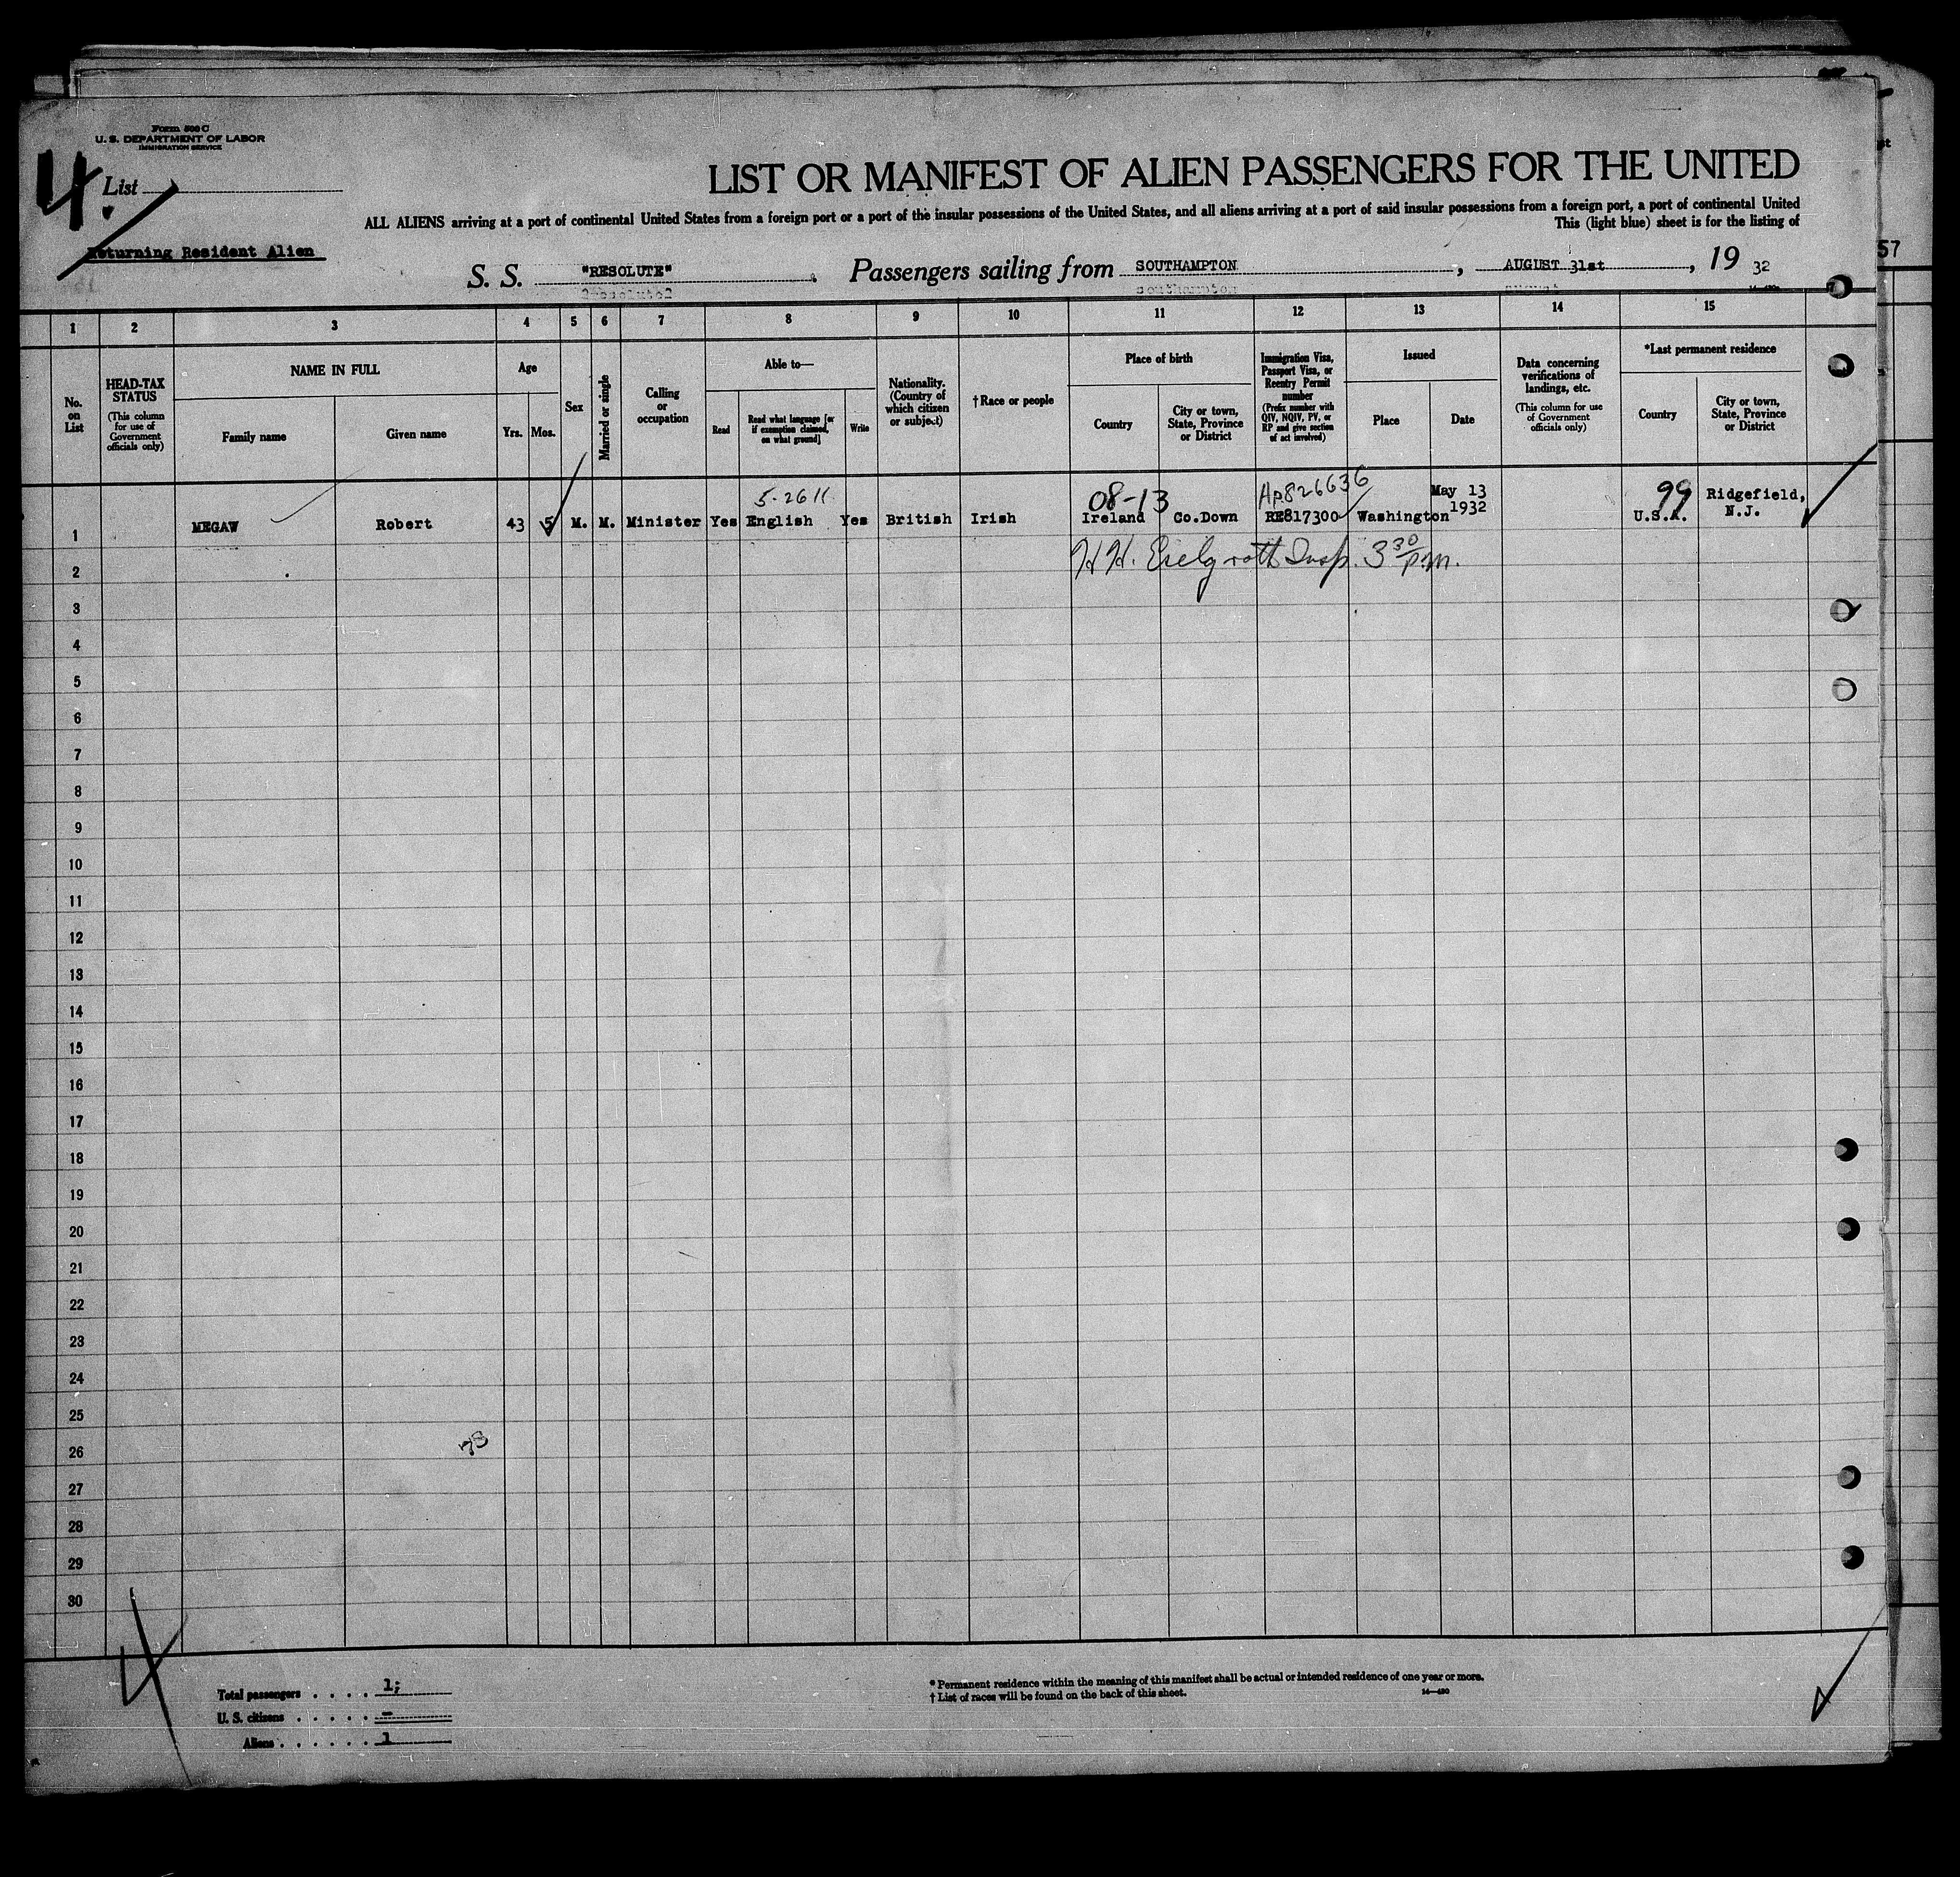 Form 500 C
U. S. DEPARTMENT OF LABOR
IMMIGRATION SERVICE
4.
List
LIST OR MANIFEST OF ALIEN PASSENGERS FOR THE UNITED
ALL ALIENS arriving at a port of continental United States from a foreign port or a port of the insular possessions of the United States, and all aliens arriving at a port of said insular possessions from a foreign port, a port of continental United
This (light blue) sheet is for the listing of
Returning Resident Alien
57
S. S. "RESOLUTE" , Passengers sailing from SOUTHAMPTON , AUGUST 31st , 19 32
1 2 3 4 5 6 7 8 9 10 11 12 13 14 15
No. on List
HEAD-TAX STATUS
(This column for use of Government officials only)
NAME IN FULL
Family name
Given name
Age
Yrs.
Mos.
Sex
Married or single
Calling or occupation
Able to—
Read
Read what language [or if exemption claimed, on what ground]
Write
Nationality. (Country of which citizen or subject)
†Race or people
Place of birth
Country
City or town, State, Province or District
Immigration Visa, Passport Visa, or Reentry Permit number
(Prefix number with QIV, NQIV, PV, or RP and give section of act involved)
Issued
Place
Date
Data concerning verifications of landings, etc.
(This column for use of Government officials only)
*Last permanent residence
Country
City or town, State, Province or District
5-2611 08-13 Ap826636 May 13 99 Ridgefield,
1 MEGAW Robert 43 5 M. M. Minister Yes English Yes British Irish Ireland Co.Down RE817300 Washington 1932 U.S.A. N.J.
2 H H. Insp. 3 30 p.m.
3
4
5
6
7
8
9
10
11
12
13
14
15
16
17
18
19
20
21
22
23
24
25
26
27
28
29
30
Total passengers . . . . 1;
U. S. citizens . . . . . –
Aliens . . . . . . 1
* Permanent residence within the meaning of this manifest shall be actual or intended residence of one year or more.
† List of races will be found on the back of this sheet.
14—430